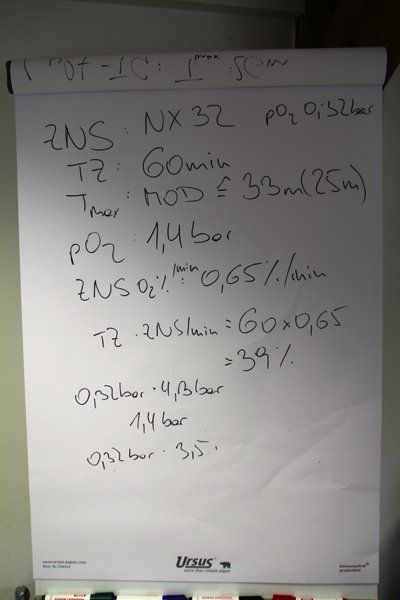 ZNS : NX 32   pO2 0,32bar
TZ : 60min
Tmax : MOD ≙ 33m (25m)
pO2 : 1,4 bar
ZNS O2%/min : 0,65%/min
TZ · ZNS/min = 60 x 0,65
= 39%
0,32bar · 4,3bar
1,4bar
0,32bar · 3,5.
www.ursus-paper.com
Ursus
more than simple paper